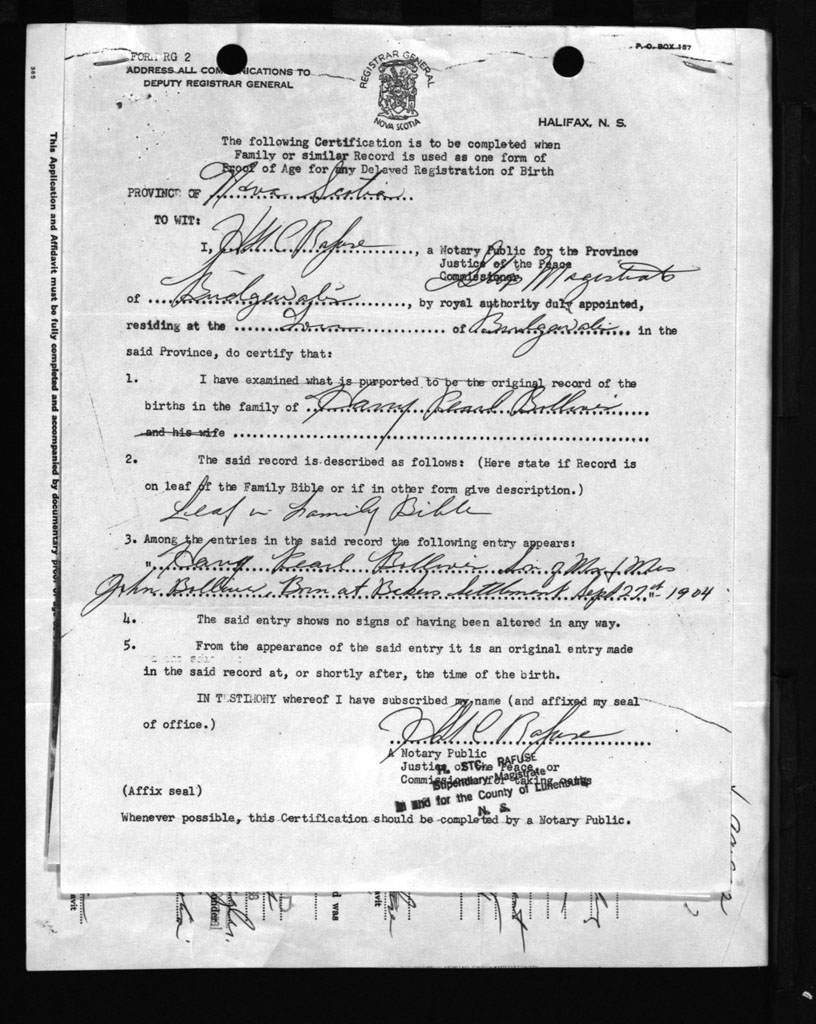 FORM RG 2
P. O. BOX 157
ADDRESS ALL COMMUNICATIONS TO
DEPUTY REGISTRAR GENERAL
REGISTRAR GENERAL
NOVA SCOTIA
HALIFAX, N. S.
The following Certification is to be completed when
Family or similar Record is used as one form of
Proof of Age for any Delayed Registration of Birth
PROVINCE OF Nova Scotia
TO WIT:
I, H St C Rafuse, a Notary Public for the Province
Justice of the Peace
Commissioner Stip Magistrate
of Bridgewater, by royal authority duly appointed,
residing at the Town of Bridgewater in the
said Province, do certify that:
1. I have examined what is purported to be the original record of the
births in the family of Harry Pearl Bolliver
and his wife
2. The said record is described as follows: (Here state if Record is
on leaf of the Family Bible or if in other form give description.)
Leaf in Family Bible
3. Among the entries in the said record the following entry appears:
"Harry Pearl Bolliver Son of Mr & Mrs
John Bolliver Born at Bakers Settlement Sept 27th" 1904
4. The said entry shows no signs of having been altered in any way.
5. From the appearance of the said entry it is an original entry made
in the said record at, or shortly after, the time of the birth.
IN TESTIMONY whereof I have subscribed my name (and affixed my seal
of office.)
H St C Rafuse
A Notary Public
Justice of the Peace, or
Commissioner for taking oaths
H. STC. RAFUSE
Stipendiary Magistrate
in and for the County of Lunenburg
N. S.
(Affix seal)
Whenever possible, this Certification should be completed by a Notary Public.
This Application and Affidavit must be fully completed and accompanied by documentary